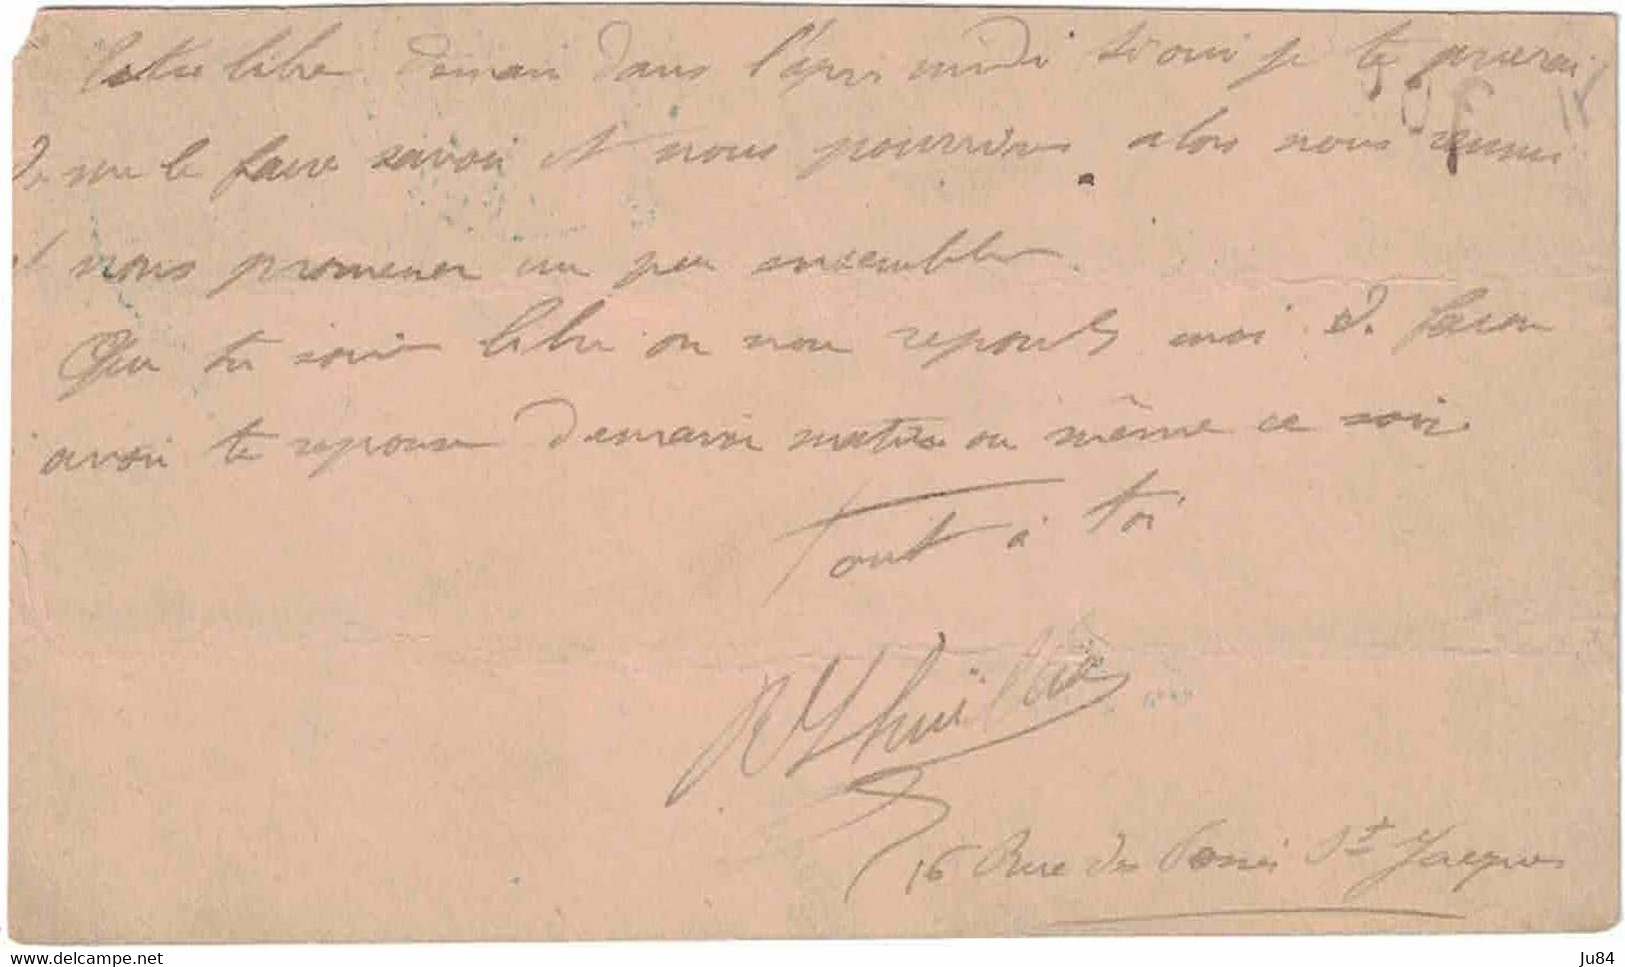 libre demain dans l'après midi si oui je te prierai
de me le faire savoir et nous pourrions alors nous
et nous promener un peu ensemble.
Que tu sois libre ou non reponds moi de facon
avoir ta reponse demain matin ou même ce soir.
Tout à toi
16 Rue des Fossés St Jacques
delcampe.net
Ju84